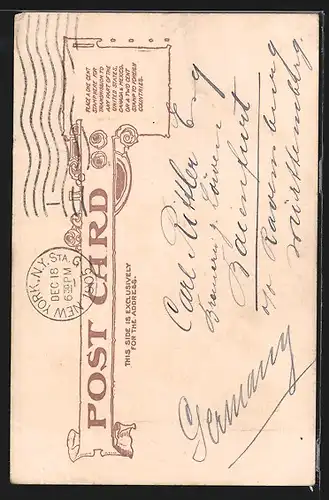 PLACE A ONE CENT
STAMP HERE FOR
TRANSMISSION TO
ANY PART OF THE
UNITED STATES,
CANADA & MEXICO,
OR A TWO CENT
STAMP TO FOREIGN
COUNTRIES.
NEW YORK, N.Y. STA. G
DEC 18
6 30 PM
1905
POST CARD
THIS SIDE IS EXCLUSIVELY
FOR THE ADDRESS.
Carl Rittler
Brauerei z. Löwen
Baienfurt
o/a Ravensburg
Württemberg.
Germany